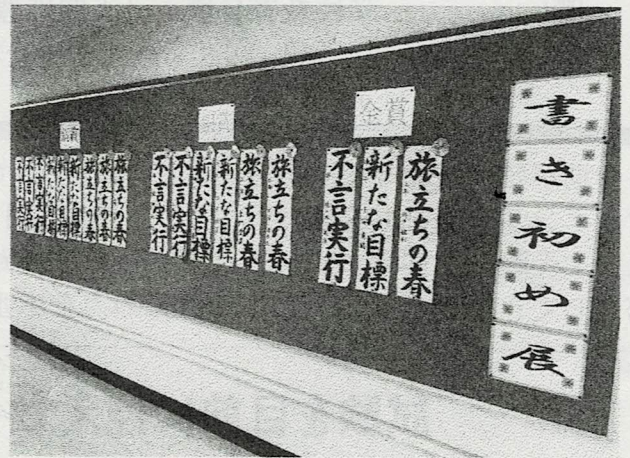 書き初め展
金賞
旅立ちの春
新たな目標
不言実行
旅立ちの春
旅立ちの春
新たな目標
新たな目標
不言実行
不言実行
旅立ちの春
旅立ちの春
旅立ちの春
新たな目標
新たな目標
新たな目標
不言実行
不言実行
不言実行